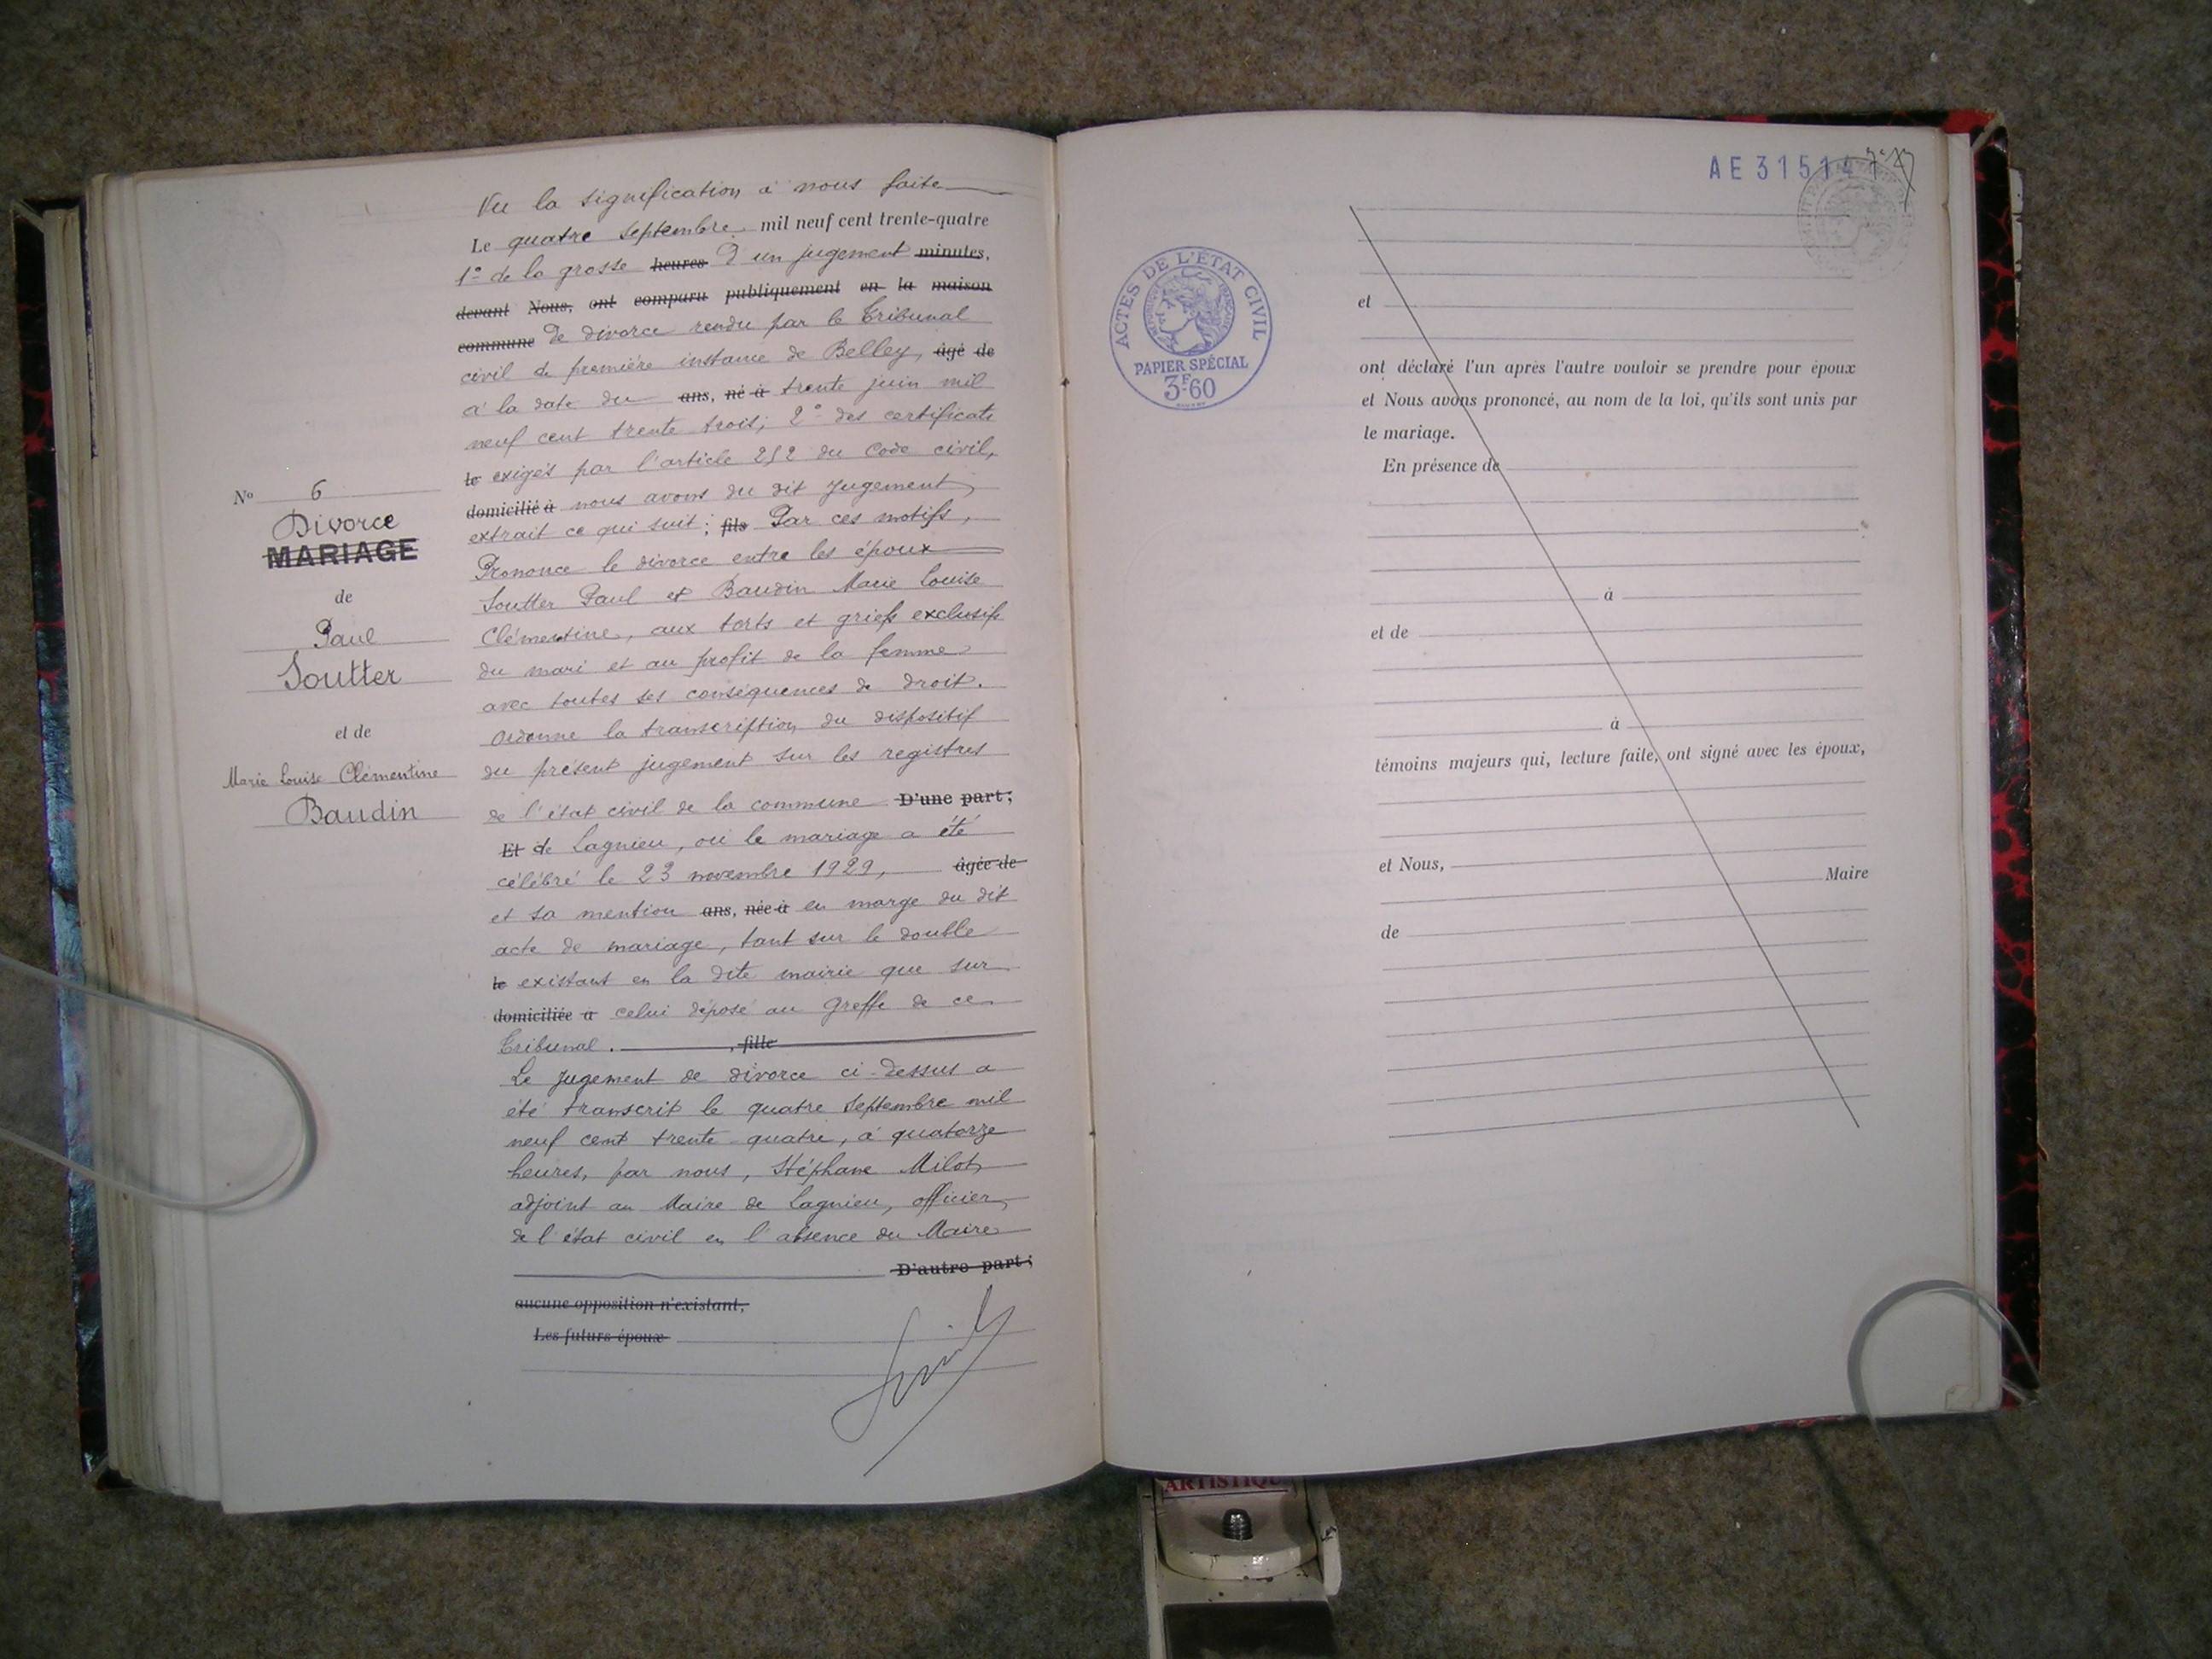 Vu la signification à nous faite
Le quatre Septembre mil neuf cent trente-quatre
1° de la grosse heures D'un jugement minutes,
devant Nous, ont comparu publiquement en la maison
commune De divorce rendu par le Tribunal
civil de première instance de Belley, âgé de
à la date du ans, né à trente juin mil
neuf cent trente trois; 2° des certificats
le exigés par l'article 252 du Code civil,
domicilié à nous avons du dit jugement
extrait ce qui suit: fils Par ces motifs,
Prononce le divorce entre les époux
Soutter Paul et Baudin Marie Louise
Clémentine, aux torts et griefs exclusifs
du mari et au profit de la femme
avec toutes ses conséquences de droit.
Ordonne la transcription du dispositif
du présent jugement sur les registres
de l'état civil de la commune D'une part;
Et de Lagnieu, où le mariage a été
célébré le 23 novembre 1929, âgée de
et sa mention ans, née à en marge du dit
acte de mariage, tant sur le double
le existant en la dite mairie que sur
domiciliée à celui déposé au Greffe de ce
Tribunal. , fille
Le jugement de divorce ci-dessus a
été transcrit le quatre Septembre mil
neuf cent trente-quatre, à quatorze
heures, par nous, Stéphane Milot,
adjoint au Maire de Lagnieu, officier
de l'état civil en l'absence du Maire
D'autre part;
aucune opposition n'existant,
Les futurs époux
N° 6
Divorce
MARIAGE
de
Paul
Soutter
et de
Marie Louise Clémentine
Baudin
ACTES DE L'ÉTAT CIVIL
RÉPUBLIQUE FRANÇAISE
PAPIER SPÉCIAL
3F60
AE 31514
et
ont déclaré l'un après l'autre vouloir se prendre pour époux
et Nous avons prononcé, au nom de la loi, qu'ils sont unis par
le mariage.
En présence de
à
et de
à
témoins majeurs qui, lecture faite, ont signé avec les époux,
et Nous,
Maire
de
ARTISTIQUE